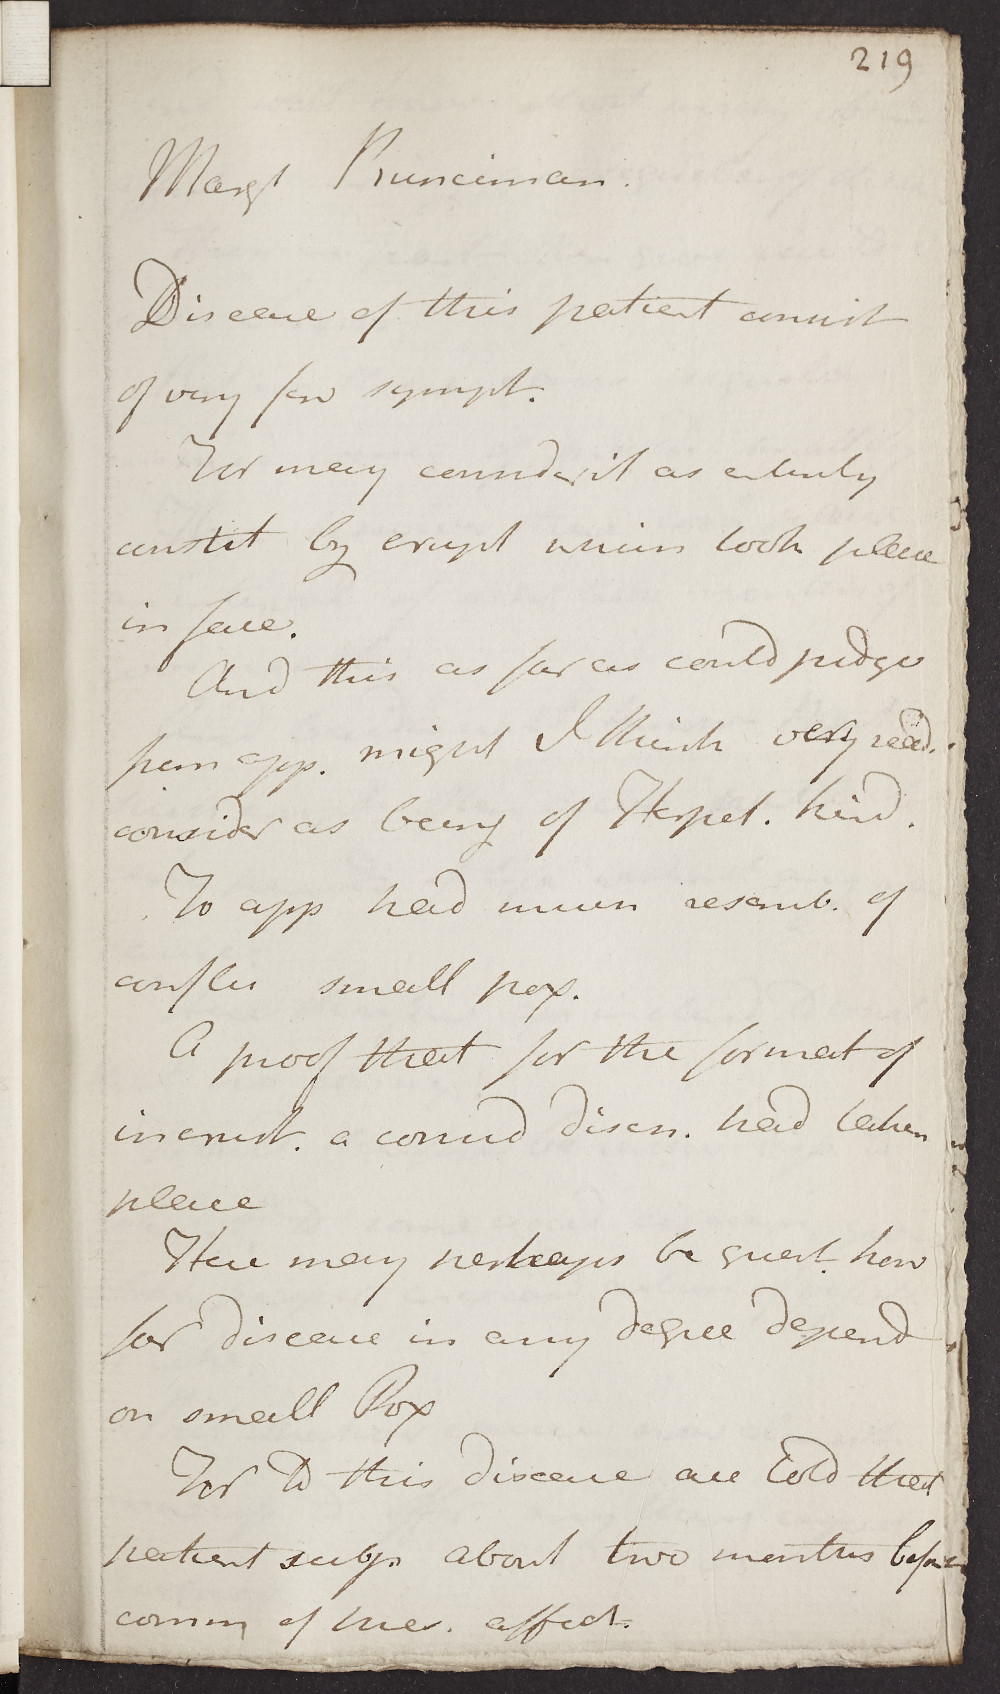 219
Margt Runciman.
Disease of this patient consist
of very few sympt.
For may consider it as entirely
constit by erupt which took place
in face.
And this as far as could judge
from app. might I think very read.
consider as being of Herpet. kind.
To app had much resemb. of
conflu small pox.
A proof that for the format of
incrust. a consid disch. had taken
place
Here may perhaps be quest. how
far disease in any degree depend
on small Pox
For to this disease are told that
patient subj. about two months before
comm of pres. affect.